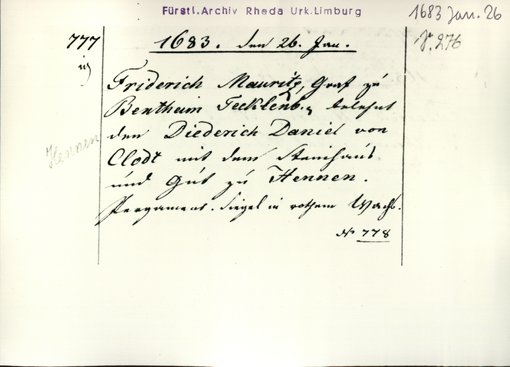 Fürstl. Archiv Rheda Urk. Limburg
1683 Jan. 26
N. 276
777
1683. den 26. Jan.
Friderich Mauritz, Graf zu
Bentham Tecklenb., belehnt
den Diederich Daniel von
Clodt mit dem Steinhaus
Hennen
und Gut zu Hennen.
Pergament. Siegel in rothem Wachs.
No 778